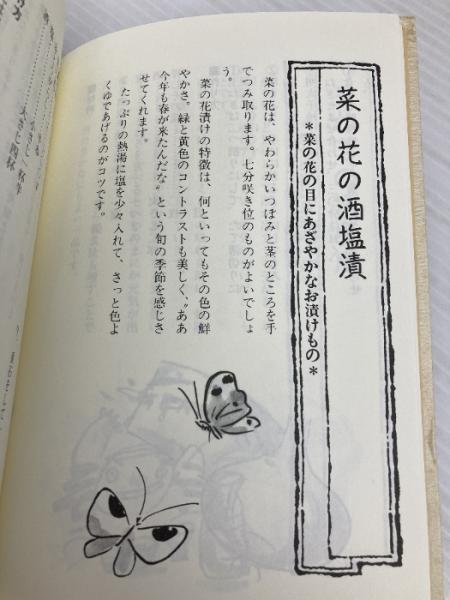 菜の花の酒塩漬
＊菜の花の目にあざやかなお漬けもの＊
菜の花は、やわらかいつぼみと茎のところを手
でつみ取ります。七分咲き位のものがよいでしょ
う。
菜の花漬けの特徴は、何といってもその色の鮮
やかさ。緑と黄色のコントラストも美しく、〝ああ
今年も春が来たんだな〟という旬の季節を感じさ
せてくれます。
たっぷりの熱湯に塩を少々入れて、さっと色よ
くゆであげるのがコツです。